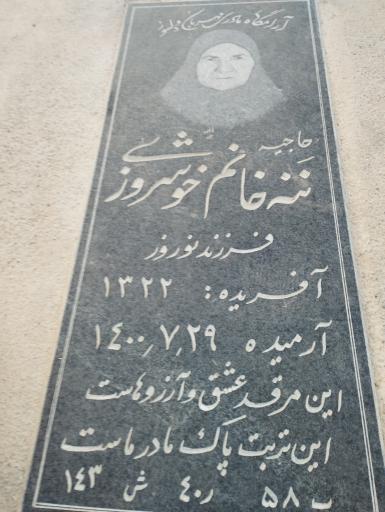 آرامگاه مادری مهربان و دلسوز
حاجیه
ننه خانم خوشروزی
فرزند نوروز
آفریده: ۱۳۲۲
آرمیده ۱۴۰۰٫۷٫۲۹
این مرقد عشق و آرزوهاست
این تربت پاک مادر ماست
ب ۵۸ ر ۴۰ ش ۱۴۳